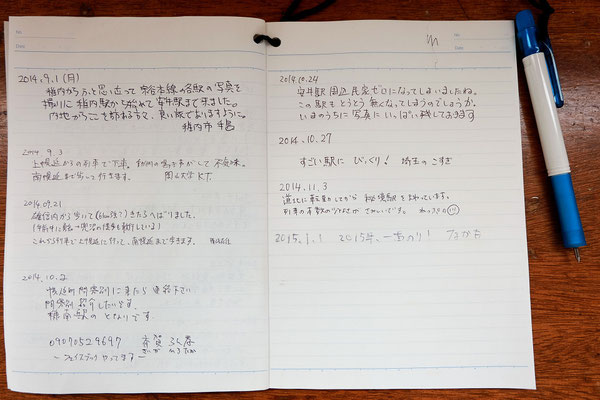 2014.9.1(月)
稚内からふと思い立って宗谷本線の各駅の写真を
撮りに稚内駅から始めて安牛駅まで来ました。
内地からここを訪れる方々、良い旅でありますように。
稚内市
2014.9.3
上幌延からの列車で下車。
南幌延まで歩いて行きます。 岡山大学 K.T.
2014.09.21
雄信内から歩いて きたらへばりました。
これから列車で上幌延に行って、南幌延まで歩きます。
2014.10.2
幌延町問寒別に来たら連絡下さい。
問寒別紹介したいです。
糠南駅のとなりです。
09070529697
さいが
〜フェイスブックやってます〜
2014.10.24
安牛駅周辺民家ゼロになってしまいましたね。
この駅もとうとう無くなってしまうのでしょうか。
いまのうちに写真にいっぱい残しておきます
2014.10.27
すごい駅にびっくり! 埼玉のこすぎ
2014.11.3
道北に転勤してから秘境駅をまわっています。
2015.1.1 2015年、一番のり!